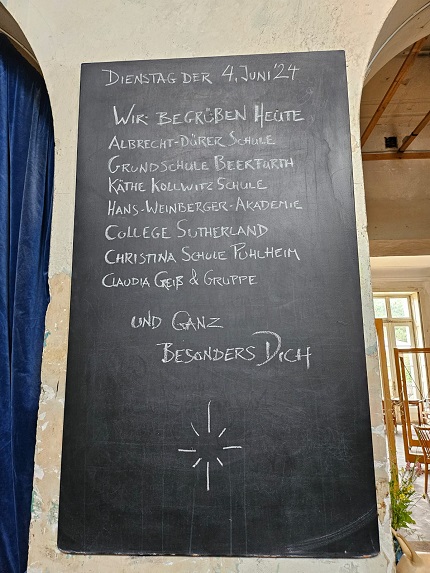 DIENSTAG DER 4. JUNI '24
WIR BEGRÜßEN HEUTE
ALBRECHT-DÜRER SCHULE
GRUNDSCHULE BEERFURTH
KÄTHE KOLLWITZ SCHULE
HANS-WEINBERGER-AKADEMIE
COLLEGE SUTHERLAND
CHRISTINA SCHULE PUHLHEIM
CLAUDIA GEIß & GRUPPE
UND GANZ
BESONDERS DICH